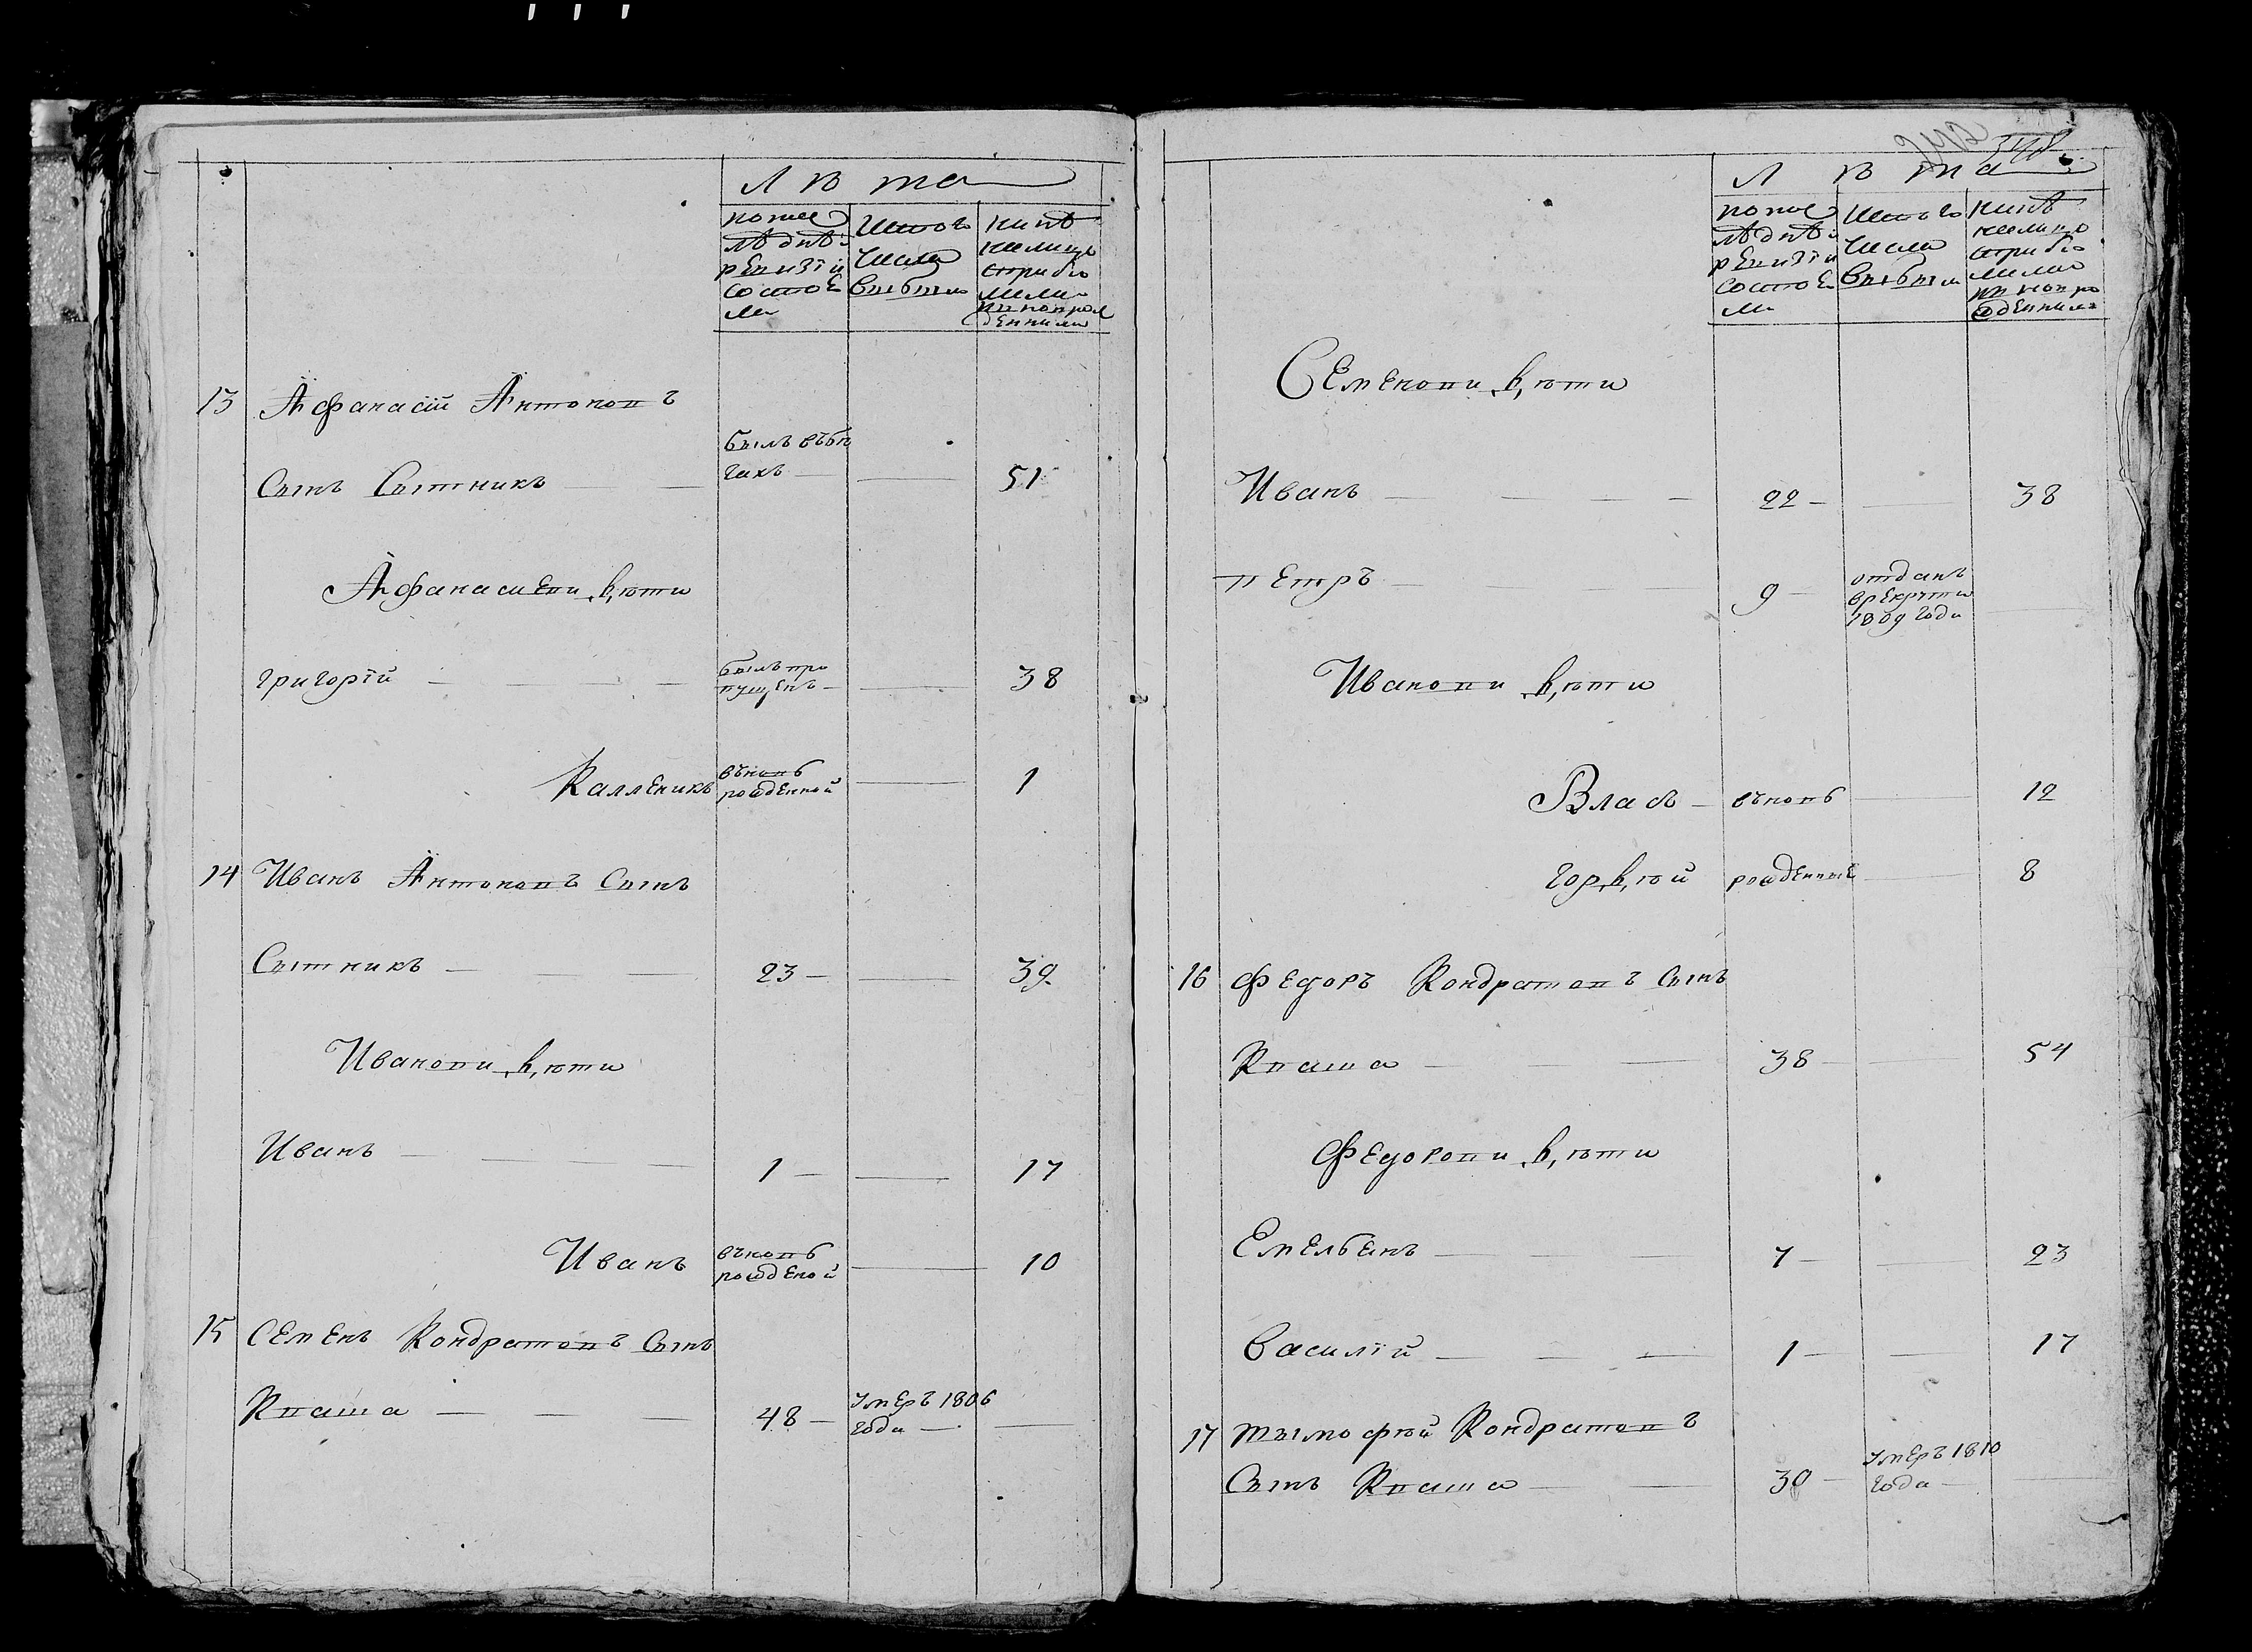 Лѣта
по пос
лѣднѣй
ревизіи
состоя
ло
Изтого
числа
выбыло
нынѣ
на лицо
съ прибы
лыми
и новорож
денными
13 Афанасій Антоновъ
сынъ Сытникъ — былъ въбѣ
гахъ — — 51
Афанасиеви дѣти
Григорій — былъ про
пущенъ — — 38
Калленикъ вновь
рожденной — 1
14 Иванъ Антоновъ сынъ
Сытникъ — 23 — — 39
Иванови дѣти
Иванъ — 1 — — 17
Иванъ вновь
рожденой — 10
15 Семенъ Кондратовъ сынъ
Кваша — 48 — умеръ 1806
года — —
Лѣта
по пос
лѣднѣй
ревизіи
состоя
ло
Изтого
числа
выбыло
нынѣ
на лицо
съ прибы
лыми
и новоро
жденными
Семенови дѣти
Иванъ — 22 — — 38
Петръ — 9 — отданъ
врекруты
1809 года —
Иванови дѣти
Власъ — вновь — 12
Гордѣй рожденные — 8
16 Федоръ Кондратовъ сынъ
Кваша — 38 — — 54
Федорови дѣти
Емельянъ — 7 — — 23
Василій — 1 — — 17
17 Тымофѣй Кондратовъ
сынъ Кваша — 30 — умеръ 1810
года — —